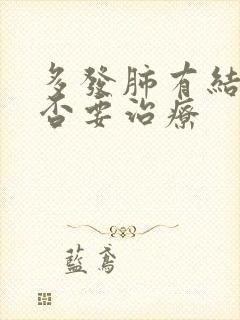 多發肺有結
否要治療
藍鳶